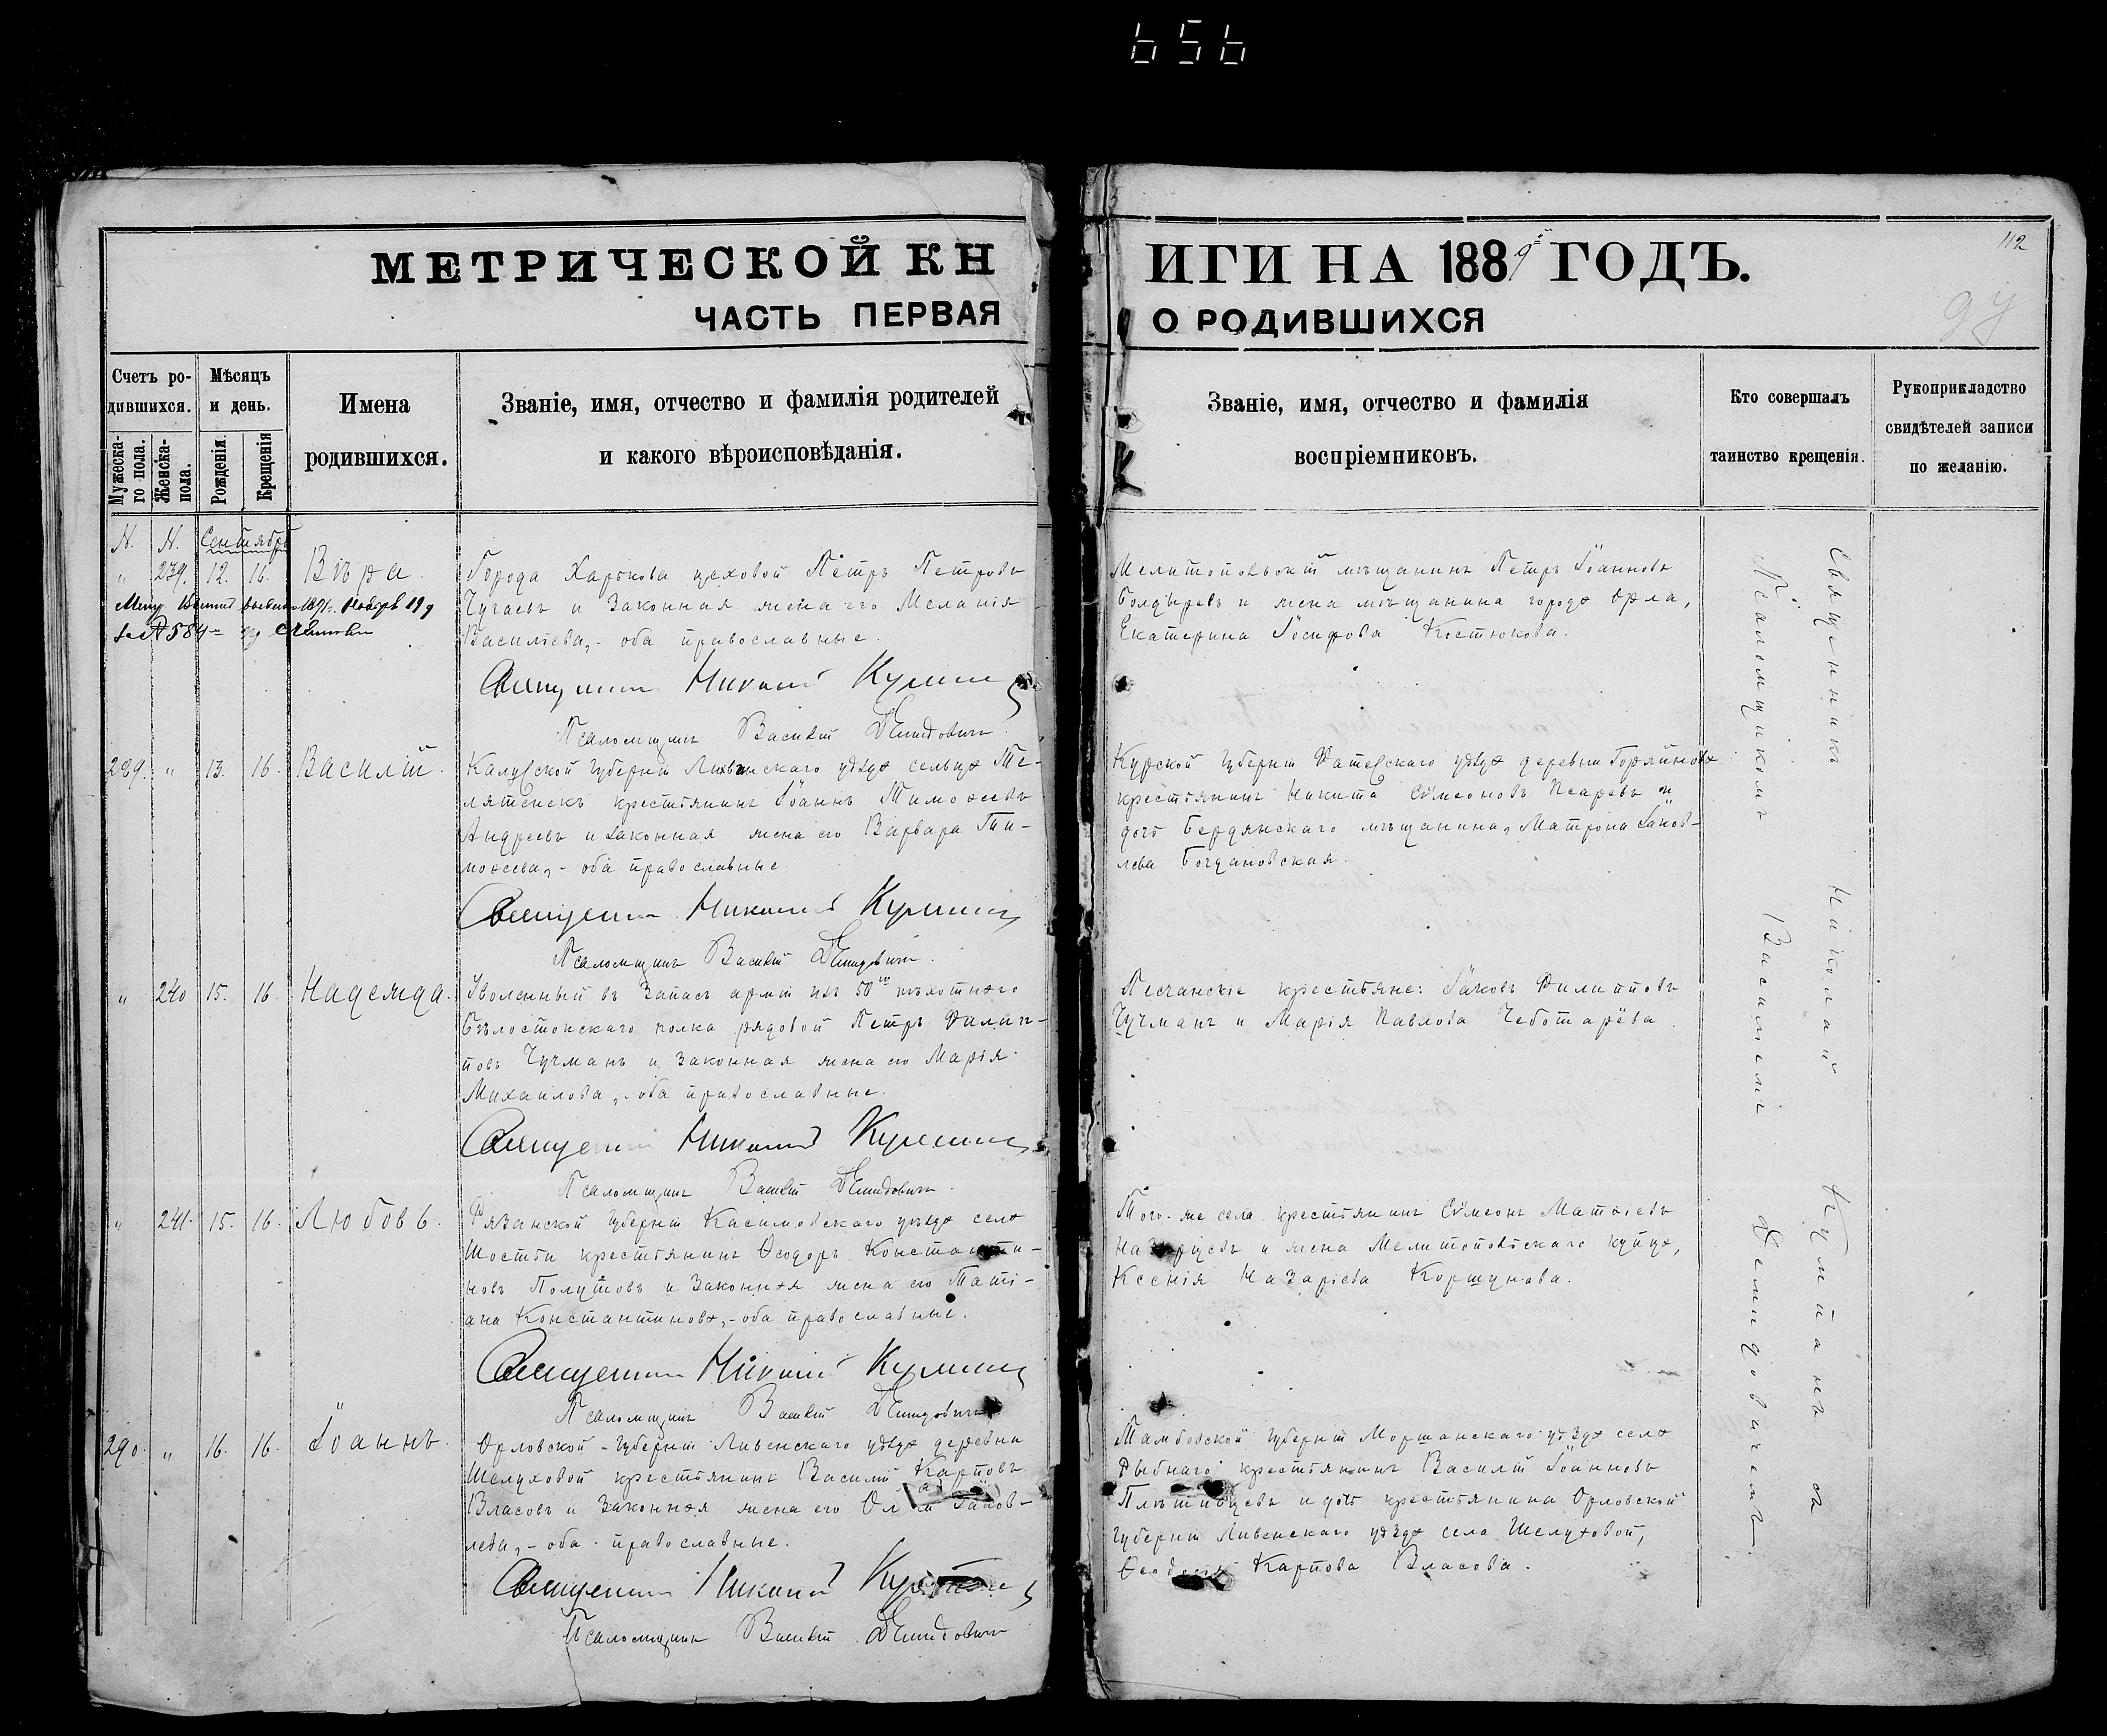 656
МЕТРИЧЕСКОЙ КН
ЧАСТЬ ПЕРВАЯ
Счетъ ро-
дившихся.
Мужеска-
го пола.
Женска-
пола.
Мѣсяцъ
и день.
Рожденія.
Крещенія
Имена
родившихся.
Званіе, имя, отчество и фамилія родителей
и какого вѣроисповѣданія.
N. N. Сентябрь
„ 239. 12. 16. Вѣра.
Города Харькова цеховой Петръ Петровъ
Чугаевъ и законная жена его Меланія
Василіева, - оба православные.
Священникъ Николай
Псаломщикъ Василій Демидовичъ
289. „ 13. 16. Василій.
Калужской губерніи Лихвинскаго уѣзда сельца Те-
крестьянинъ Іоаннъ Тимоѳеевъ
Андреевъ и законная жена его Варвара Ти-
моѳеева, - оба православные.
Священникъ Николай
Псаломщикъ Василій Демидовичъ.
„ 240 15. 16. Надежда.
Уволенный въ запасъ арміи изъ 50го пѣхотнаго
Бѣлостокскаго полка рядовой Петръ Филип-
повъ Чучманъ и законная жена его Марія
Михаилова, - оба православные.
Священникъ Николай
Псаломщикъ Василій Демидовичъ.
„ 241. 15. 16. Любовь.
Рязанской губерніи Касимовскаго уѣзда села
Шостьи крестьянинъ Ѳеодоръ Константи-
новъ Полутовъ и законная жена его Таті-
ана Константинова, - оба православные.
Священникъ Николай
Псаломщикъ Василій Демидовичъ
290. „ 16. 16. Іоаннъ.
Орловской губерніи Ливенскаго уѣзда деревни
Шелуховой крестьянинъ Василій Карповъ
Власовъ и законная жена его Іаков-
лева, - оба православные.
Священникъ Николай
Псаломщикъ Василій Демидовичъ
ИГИ НА 1889й ГОДЪ.
112
О РОДИВШИХСЯ
Званіе, имя, отчество и фамилія
воспріемниковъ.
Кто совершалъ
таинство крещенія.
Рукоприкладство
свидѣтелей записи
по желанію.
Мелитопольскій мѣщанинъ Петръ Іоанновъ
Болдыревъ и жена мѣщанина города Орла,
Екатерина Іосифова Костюкова.
Курской губерніи Фатежскаго уѣзда деревни Горяйнова
крестьянинъ Никита Сѷмеоновъ Псаревъ и
дочь Бердянскаго мѣщанина, Матрона Іаков-
лева Богдановская.
Песчанскіе крестьяне: Іаковъ Филипповъ
Чучманъ и Марія Павлова Чеботарёва.
Того-же села крестьянинъ Сѷмеонъ Матѳіевъ
и жена Мелитопольскаго купца,
Ксенія Назаріева Коршунова.
Тамбовской губерніи Моршанскаго уѣзда села
Рыбнаго крестьянинъ Василій Іоанновъ
и дочь крестьянина Орловской
губерніи Ливенскаго уѣзда села Шелуховой,
Карпова Власова.
Священникъ Николай Кулшанъ съ
Псаломщикомъ Василіемъ Демидовичемъ.